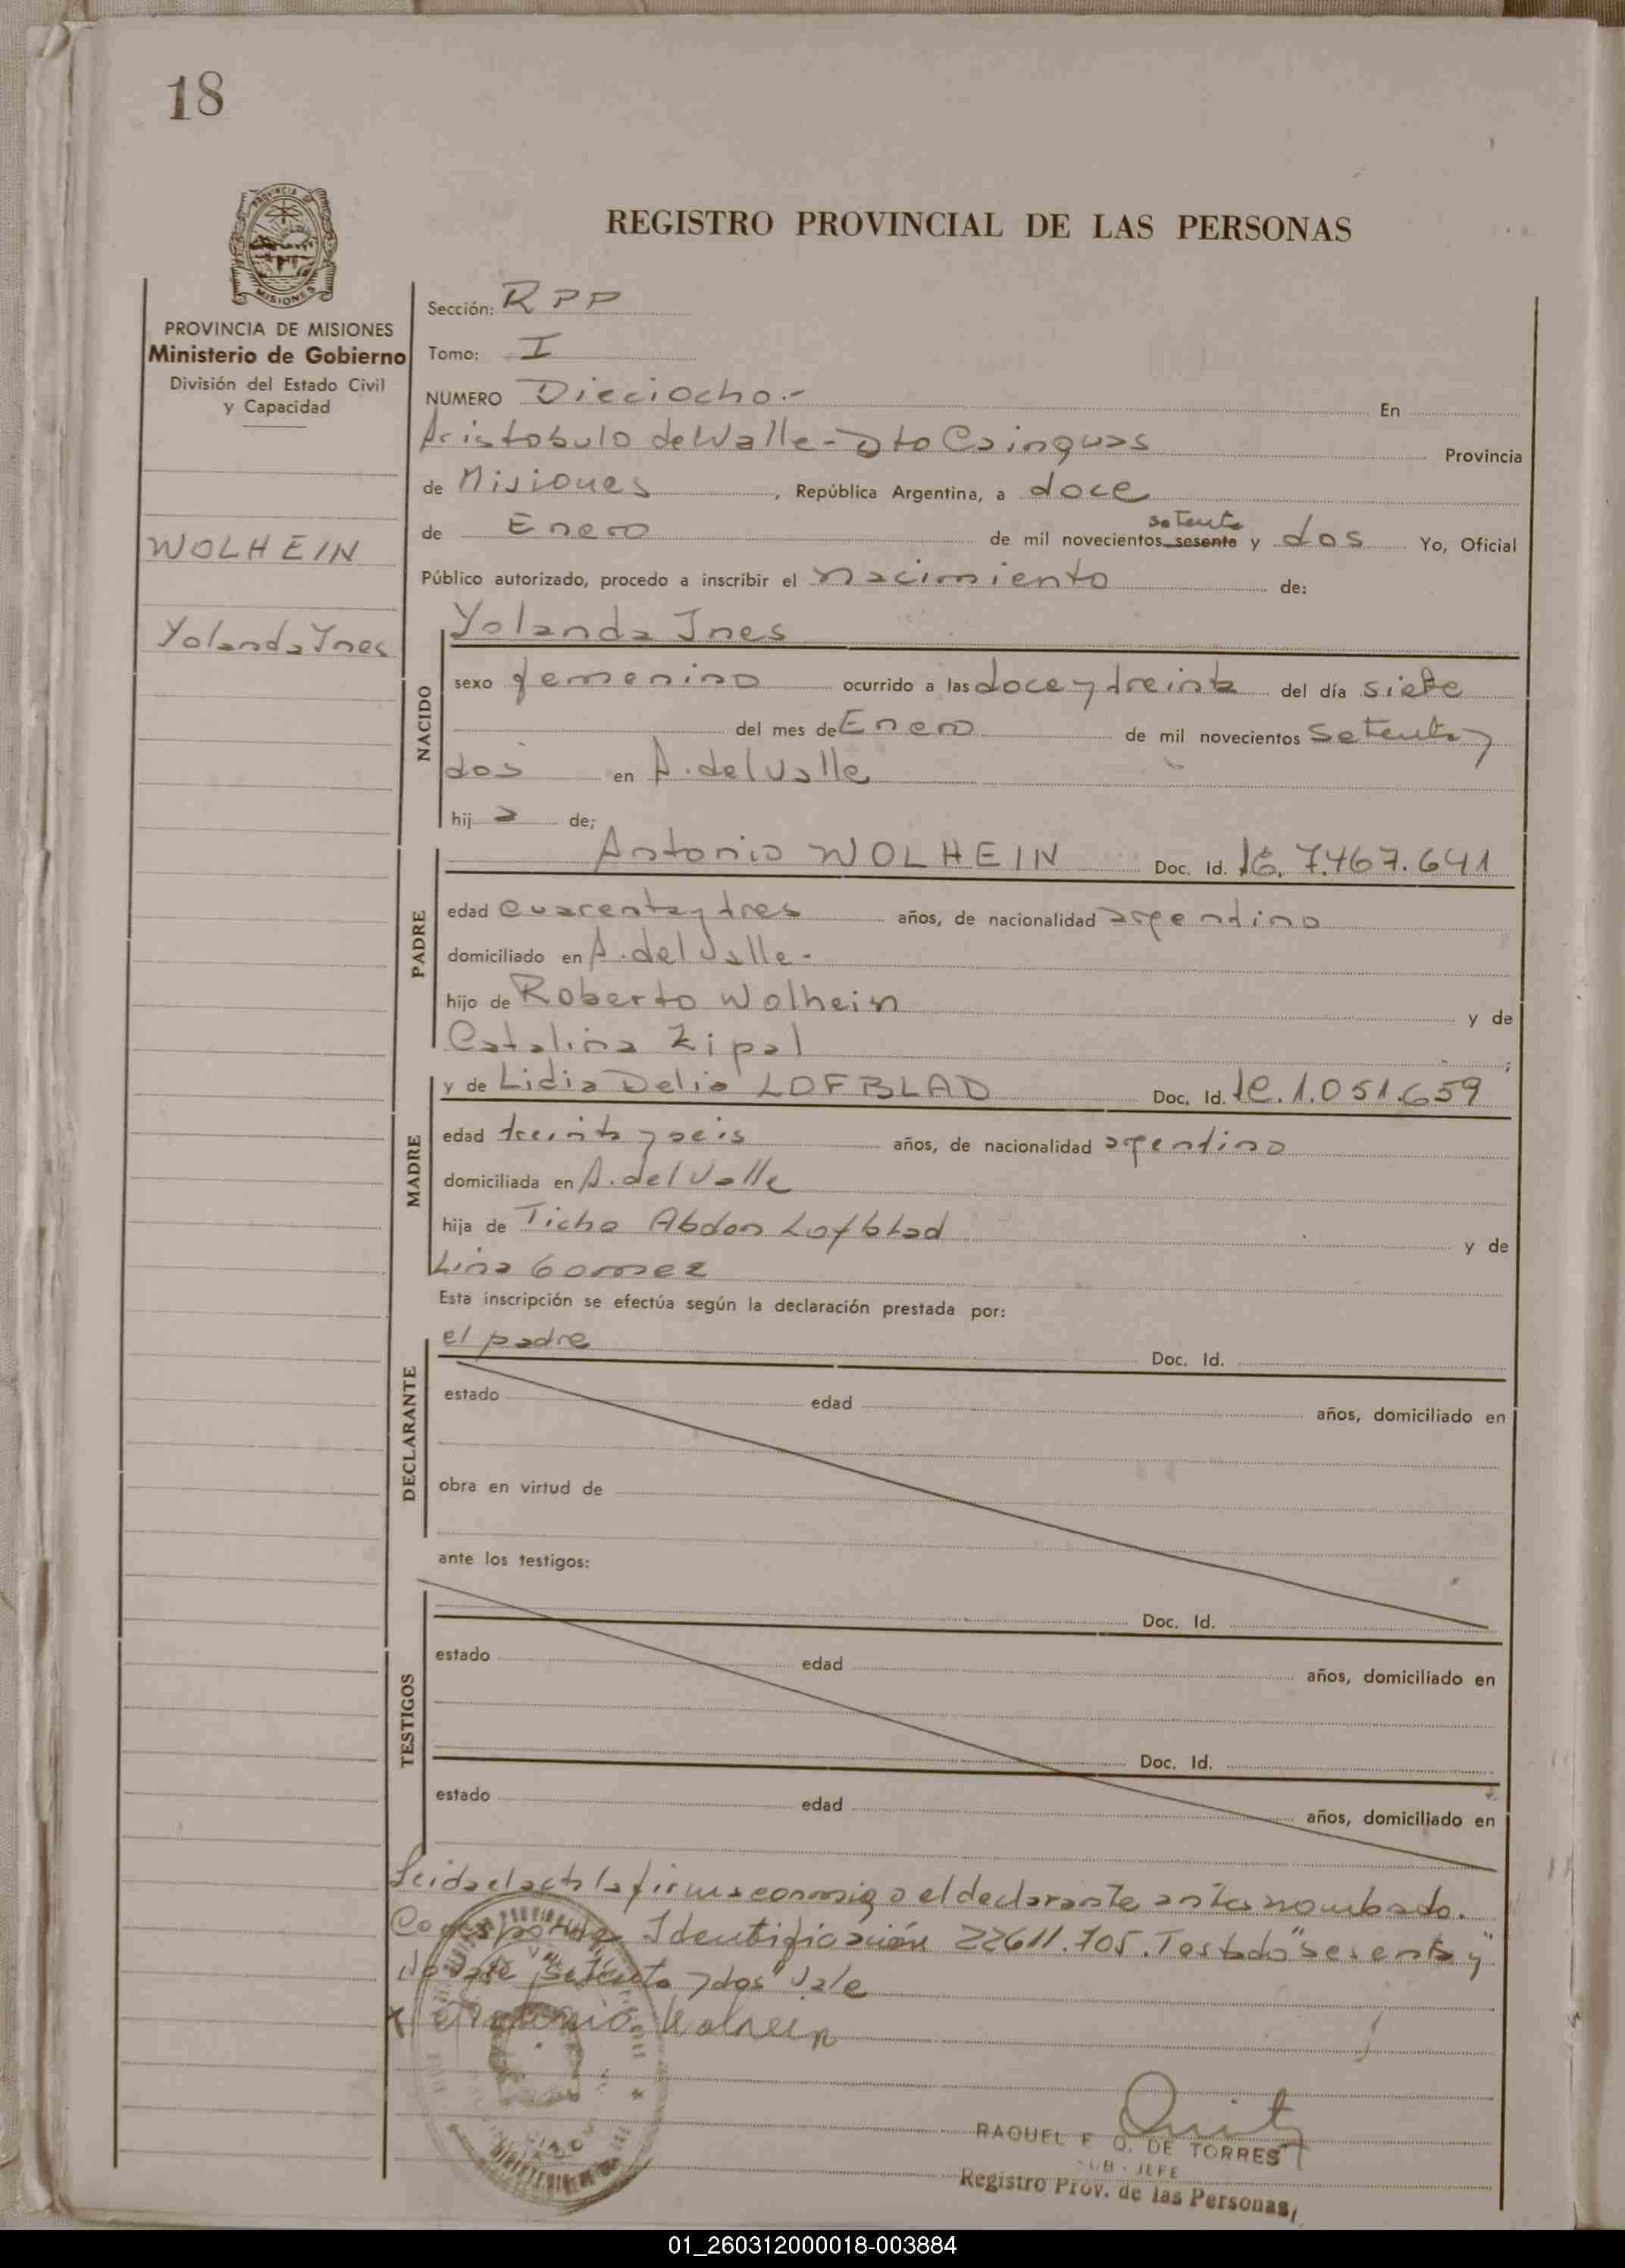 18
PROVINCIA
MISIONES
PROVINCIA DE MISIONES
Ministerio de Gobierno
División del Estado Civil
y Capacidad
WOLHEIN
Yolanda Ines
REGISTRO PROVINCIAL DE LAS PERSONAS
Sección: RPP
Tomo: I
NUMERO Dieciocho.- En
Aristobulo del Valle - Dto Cainguas Provincia
de Misiones, República Argentina, a doce
setenta
de Enero de mil novecientos sesenta y dos Yo, Oficial
Público autorizado, procedo a inscribir el nacimiento de:
NACIDO
Yolanda Ines
sexo femenino ocurrido a las doce y treinta del día siete
del mes de Enero de mil novecientos setenta y
dos en A. del Valle
hij a de;
PADRE
Antonio WOLHEIN Doc. Id. 7.467.641
edad cuarenta y tres años, de nacionalidad argentino
domiciliado en A. del Valle-
hijo de Roberto Wolhein y de
Catalina Zipal ;
MADRE
y de Lidia Delia LOFBLAD Doc. Id. lc. 1.051.659
edad treinta y seis años, de nacionalidad argentina
domiciliada en A. del Valle
hija de Ticho Abdon Lofblad y de
Lina Gomez
Esta inscripción se efectúa según la declaración prestada por:
DECLARANTE
el padre Doc. Id.
estado edad años, domiciliado en
obra en virtud de
ante los testigos:
TESTIGOS
Doc. Id.
estado edad años, domiciliado en
Doc. Id.
estado edad años, domiciliado en
Leida el acta la firma conmigo el declarante antes nombrado.
Corresponde Identificación 22611.705. Testado "sesenta y"
no vale "setenta y dos" Vale
x Antonio Wolhein
RAQUEL F. O. DE TORRES
SUB - JEFE
Registro Prov. de las Personas
01_260312000018-003884